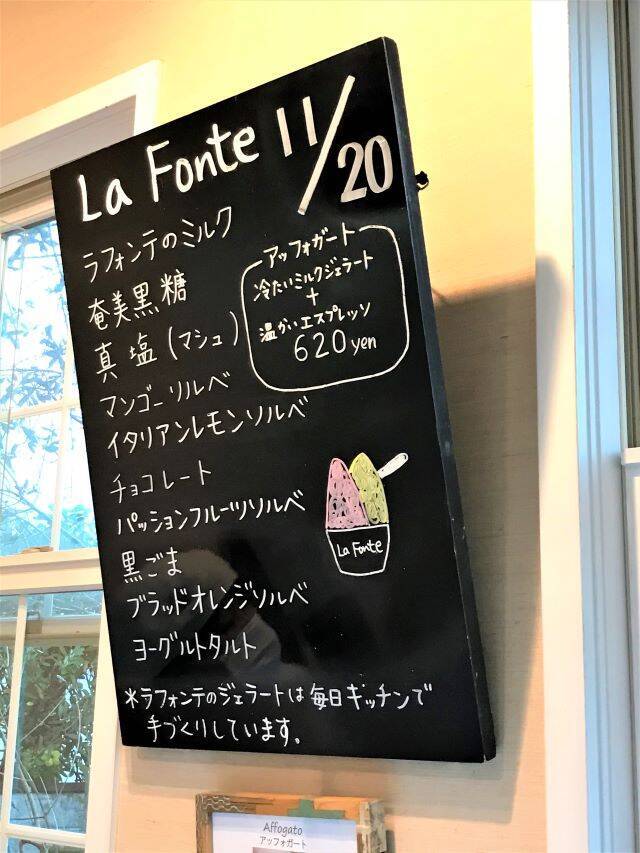 La Fonte 11/20
ラフォンテのミルク
奄美黒糖
真塩(マシュ)
マンゴーソルベ
イタリアンレモンソルベ
チョコレート
パッションフルーツソルベ
黒ごま
ブラッドオレンジソルベ
ヨーグルトタルト
アッフォガート
冷たいミルクジェラート
+
温かいエスプレッソ
620yen
La Fonte
*ラフォンテのジェラートは毎日キッチンで
手づくりしています。
Affogato
アッフォガート